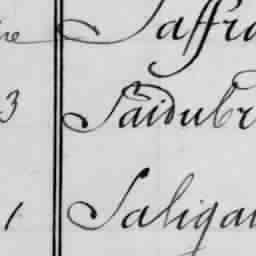 re Saffra
3 Saidubr
1 Saligau